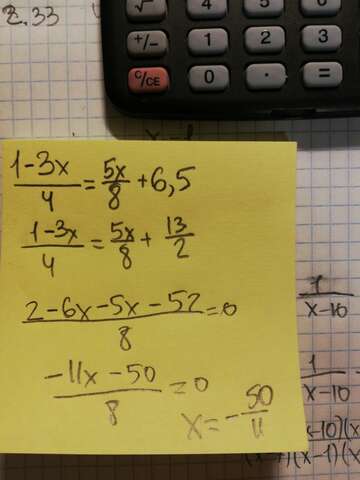 2.33
√ 4 5 6
+/- 1 2 3
C/CE 0 · =
(1-3x)/4 = 5x/8 + 6,5
(1-3x)/4 = 5x/8 + 13/2
(2-6x-5x-52)/8 = 0
(-11x-50)/8 = 0
x = -50/11
x-10
1/(x-10)